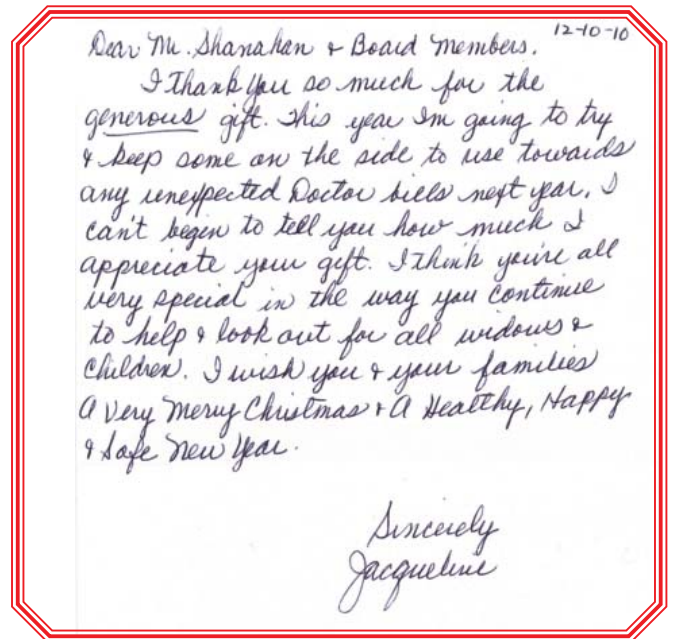 12-10-10
Dear Mr. Shanahan & Board Members.
I Thank You so much for the
generous gift. This year Im going to try
& keep some on the side to use towards
any unexpected Doctor bills next year. I
can't begin to tell you how much I
appreciate your gift. I think you're all
very special in the way you continue
to help & look out for all widows &
Children. I wish you & your families
A Very Merry Christmas & A Healthy, Happy
& Safe New Year.
Sincerely
Jacqueline